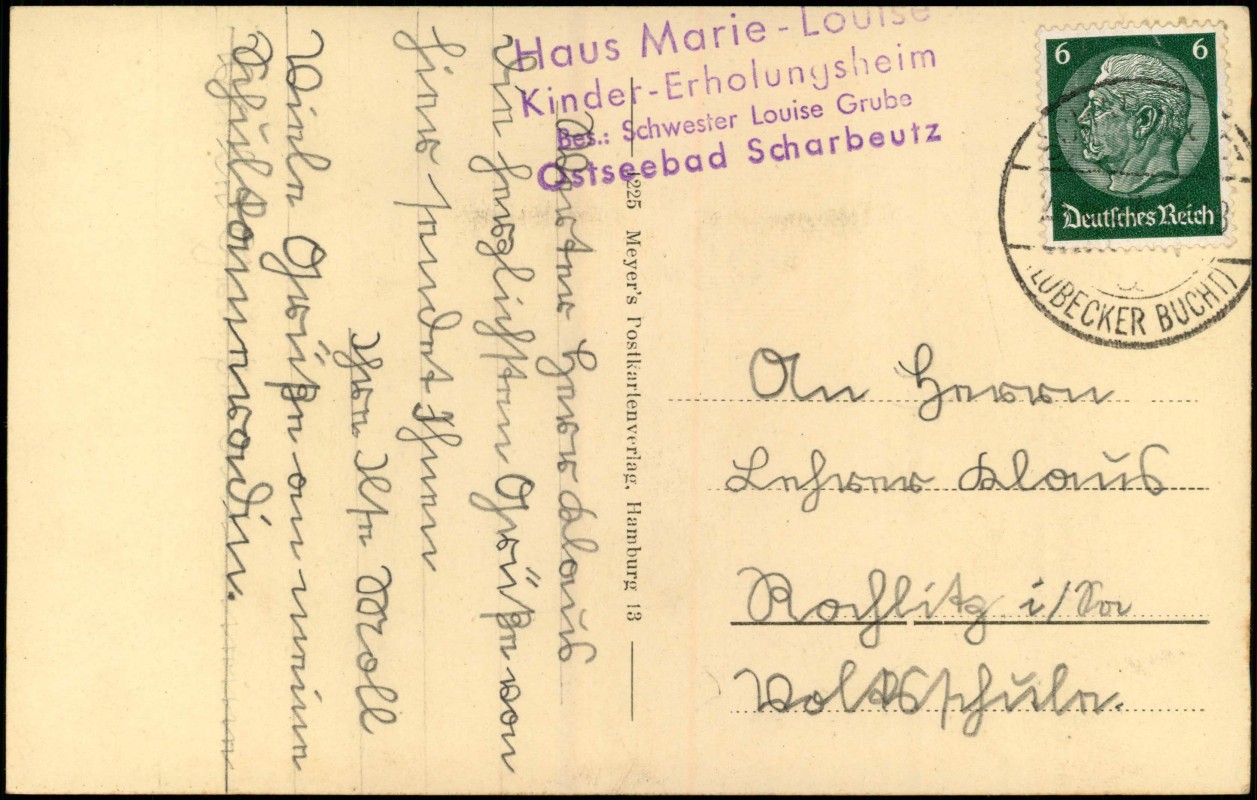 Haus Marie-Louise
Kinder-Erholungsheim
Bes.: Schwester Louise Grube
Ostseebad Scharbeutz
6 6
Deutsches Reich
(LÜBECKER BUCHT)
Werter Herr Klaus
Die herzlichsten Grüße von
hier sendet Ihnen
Ihre Ilse Moll
Viele Grüße an meine
Schulkameraden.
1225 Meyer's Postkartenverlag, Hamburg 13
An Herrn
Lehrer Klaus
Rochlitz i/Sa
Volksschule.